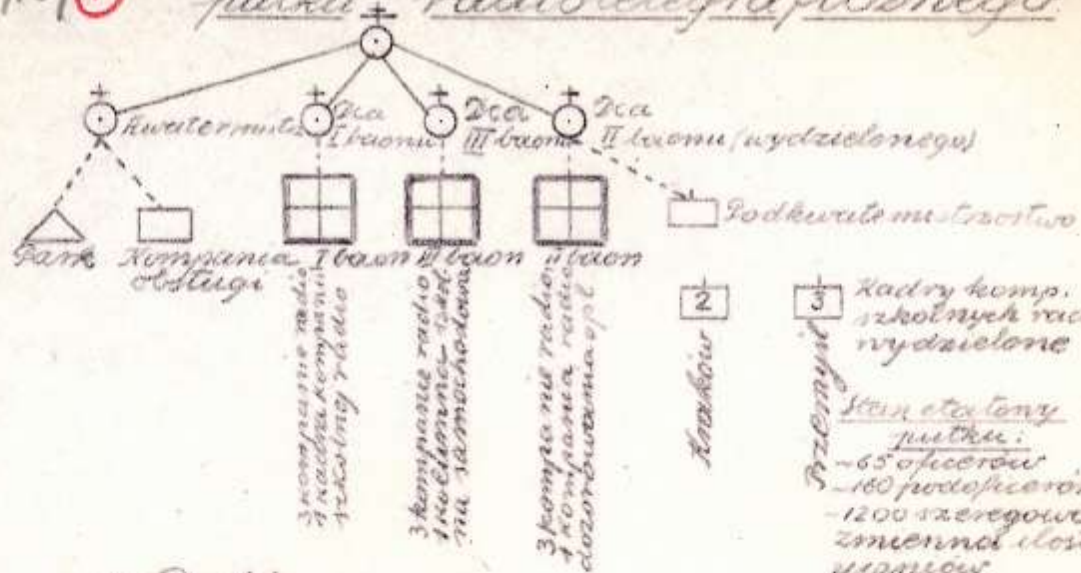 pułku radiotelegraficznego.
Kwatermistrz
Dca
I baonu
Dca
III baonu
Dca
II baonu (wydzielonego)
Podkwatermistrzostwo
Park
Kompania
obsługi
I baon
III baon
II baon
3 kompanie radio
1 kadra kompanii
szkolnej radio
3 kompanie radio
na samochodowa
3 kompanie radio
1 kompania radio
dozorowania opl
2
Kraków
3
Przemyśl
Kadry komp.
szkolnych rad
wydzielone
Stan etatowy
pułku:
~65 oficerów
~160 podoficerów
~1200 szeregow
zmienna ilość